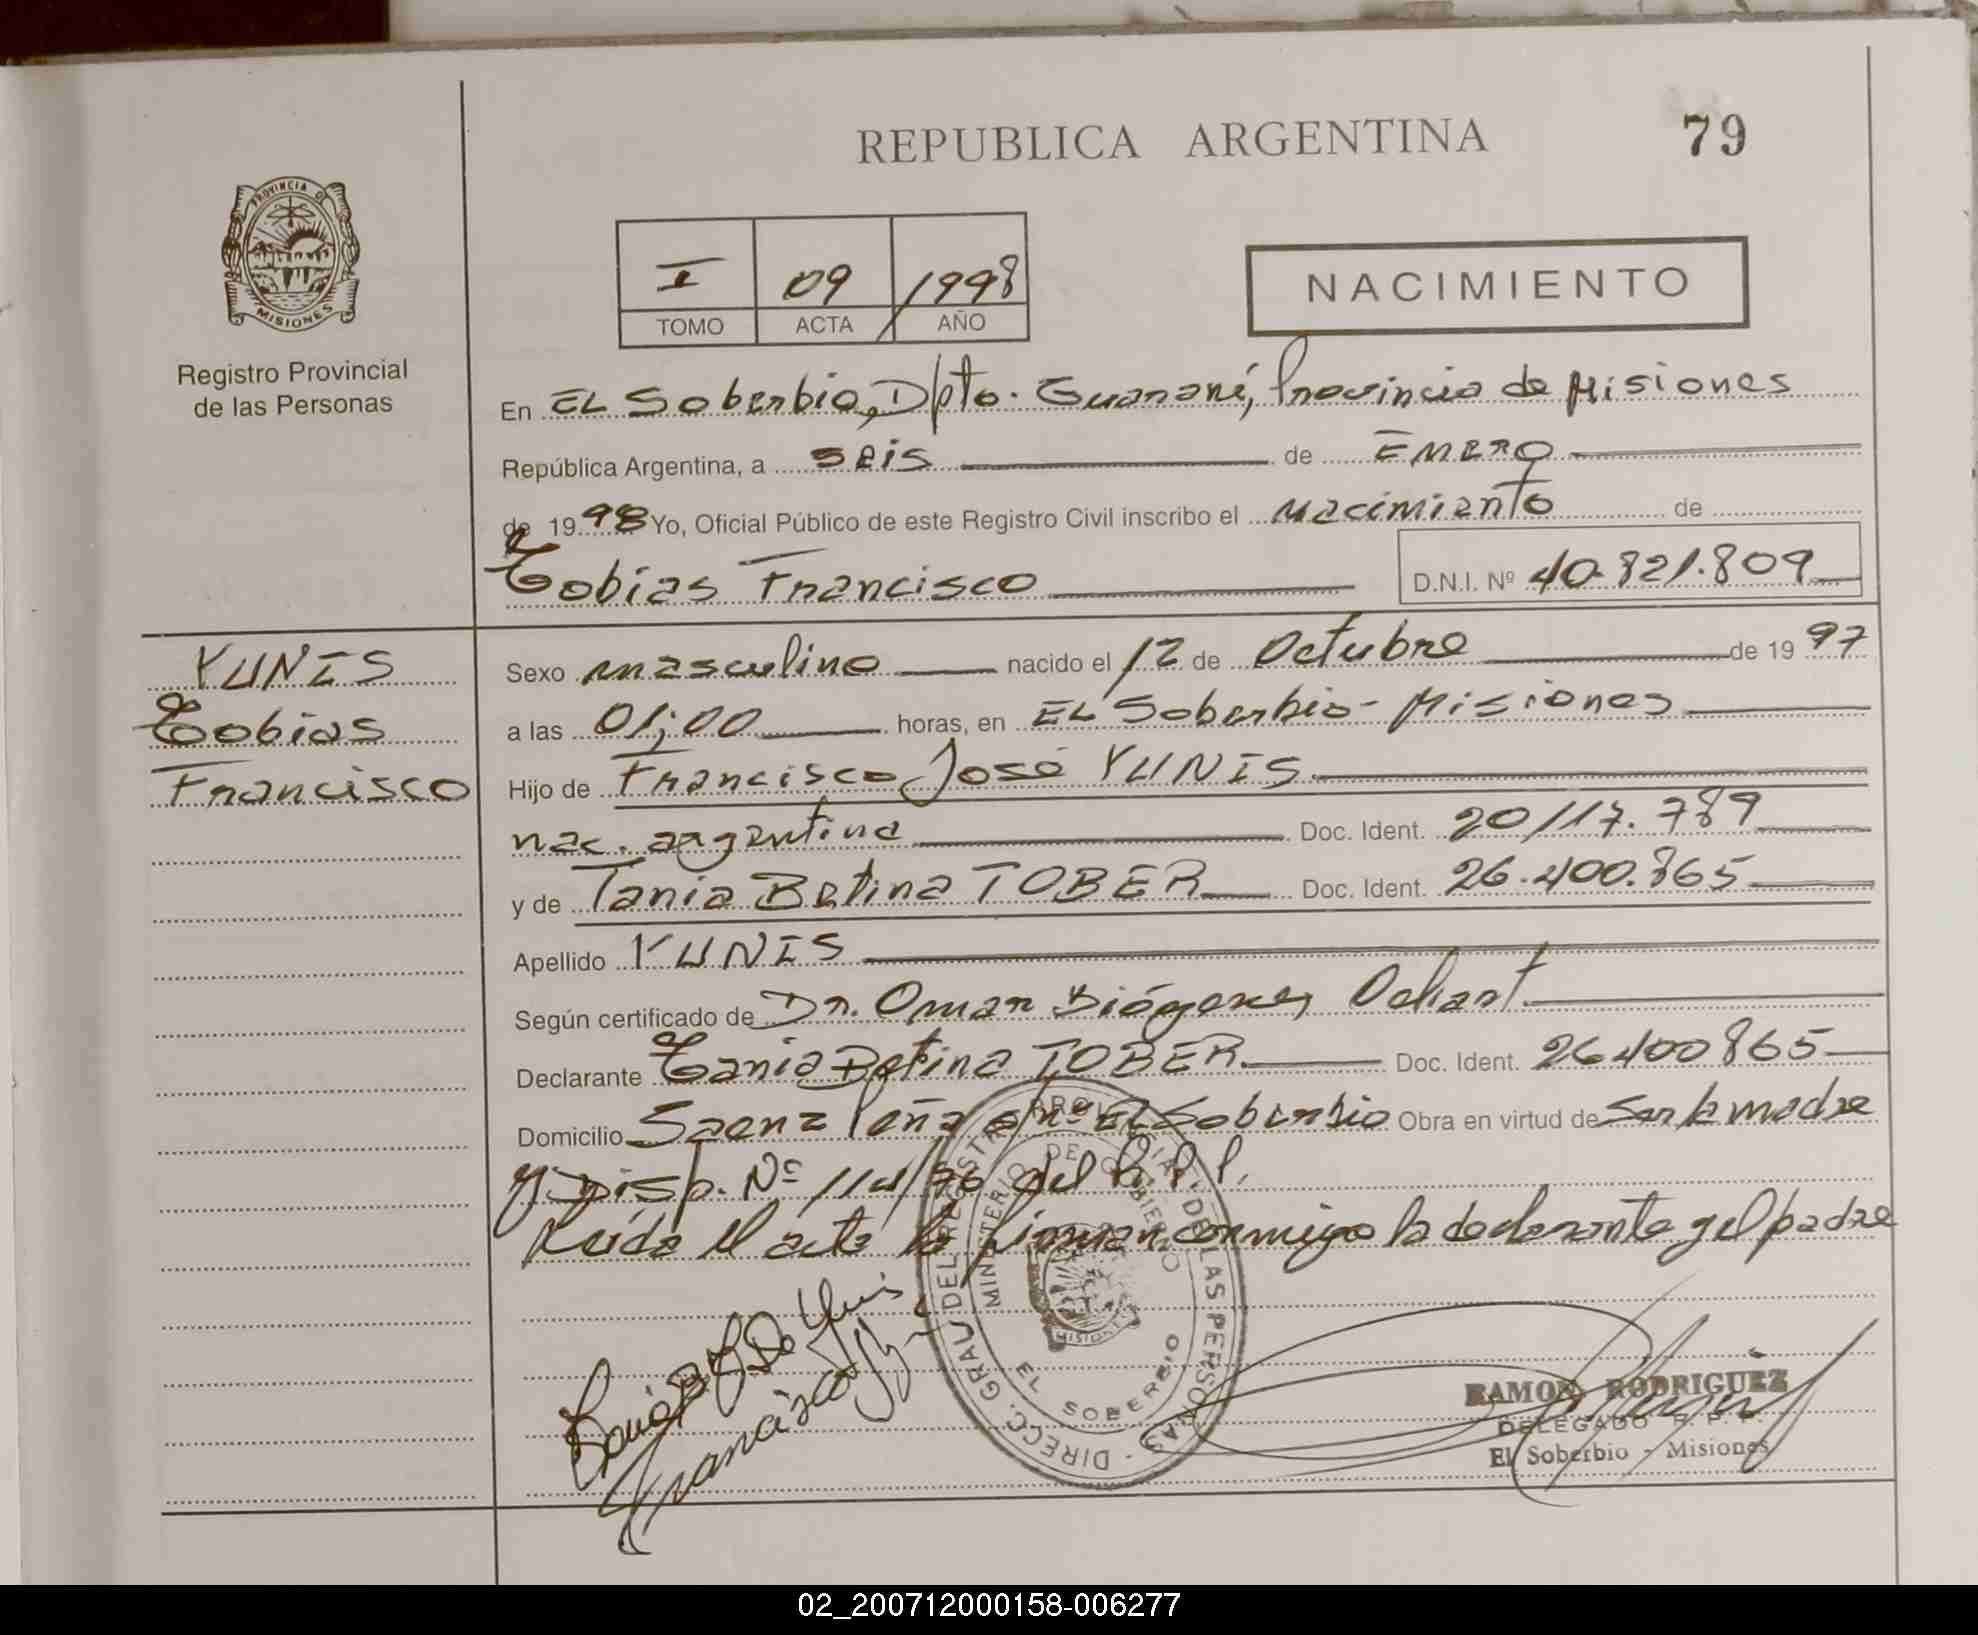 REPUBLICA ARGENTINA
79
PROVINCIA DE
MISIONES
Registro Provincial
de las Personas
I 09 1998
TOMO ACTA AÑO
NACIMIENTO
En EL Soberbio, Dpto. Guaraní, Provincia de Misiones
República Argentina, a seis de ENERO
de 1998 Yo, Oficial Público de este Registro Civil inscribo el nacimiento de
Tobias Francisco D.N.I. Nº 40.821.809
YUNIS
Tobias
Francisco
Sexo masculino nacido el 12 de Octubre de 1997
a las 01;00 horas, en EL Soberbio - Misiones
Hijo de Francisco José YUNIS
nac. argentina Doc. Ident. 20/117.789
y de Tania Betina TOBER Doc. Ident. 26.400.865
Apellido YUNIS
Según certificado de Dr. Omar Diógenes
Declarante Tania Betina TOBER Doc. Ident. 26400865
Domicilio Saenz Peña s/nº EL Soberbio Obra en virtud de Ser la madre
y Disp. Nº 114/76 del R.P.P.
Leída el acta la firman conmigo la declarante y el padre
DIRECC. GRAL DEL REGISTRO PROVINCIAL DE LAS PERSONAS
MINISTERIO DE GOBIERNO
MISIONES
EL SOBERBIO
RAMON RODRIGUEZ
DELEGADO R. P. P.
El Soberbio - Misiones
02_200712000158-006277